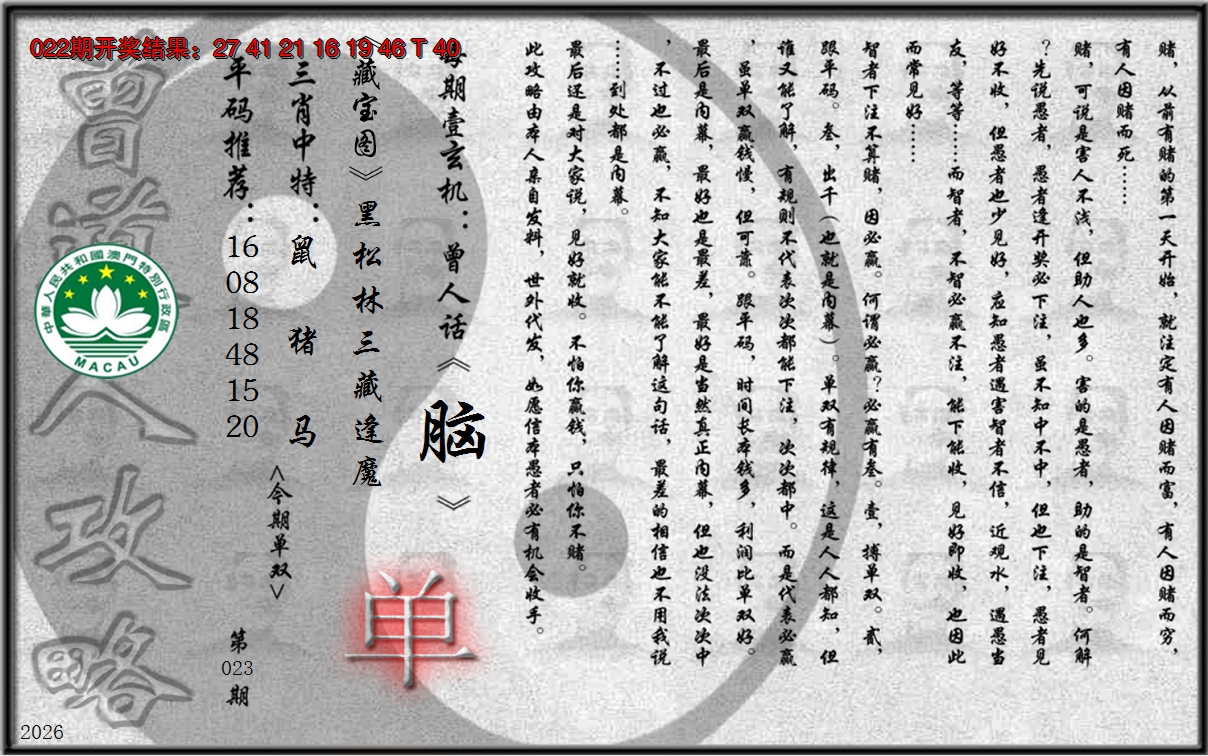 022期开奖结果：27 41 21 16 19 46 T 40
赌，从前有赌的第一天开始，就注定有人因赌而富，有人因赌而穷，
有人因赌而死……
赌，可说是害人不浅，但助人也多。害的是愚者，助的是智者。何解
？先说愚者，愚者逢开奖必下注，虽不知中不中，但也下注，愚者见
好不收，但愚者也少见好，应知愚者遇害智者不信，近观水，遇愚当
友，等等……而智者，不智必赢不注，能下能收，见好即收，也因此
而常见好……
智者下注不算赌，因必赢。何谓必赢？必赢有叁。壹，搏单双。贰，
跟平码。叁，出千（也就是内幕）。单双有规律，这是人人都知，但
谁又能了解，有规则不代表次次都能下注，次次都中。而是代表必赢
，虽单双赢钱慢，但可靠。跟平码，时间长本钱多，利润比单双好。
最后是内幕，最好也是最差，最好是当然真正内幕，但也没法次次中
，不过也必赢，不知大家能不能了解这句话，最差的相信也不用我说
……到处都是内幕。
最后还是对大家说，见好就收。不怕你赢钱，只怕你不赌。
此攻略由本人亲自发料，世外代发，如愿信本愚者必有机会收手。
每期壹玄机：曾人话《脑》
《藏宝图》黑松林三藏逢魔
三肖中特：鼠 猪 马
平码推荐：
16
08
18
48
15
20
<今期单双>
单
第
023
期
曾道人攻略
中華人民共和國澳門特別行政區
MACAU
2026